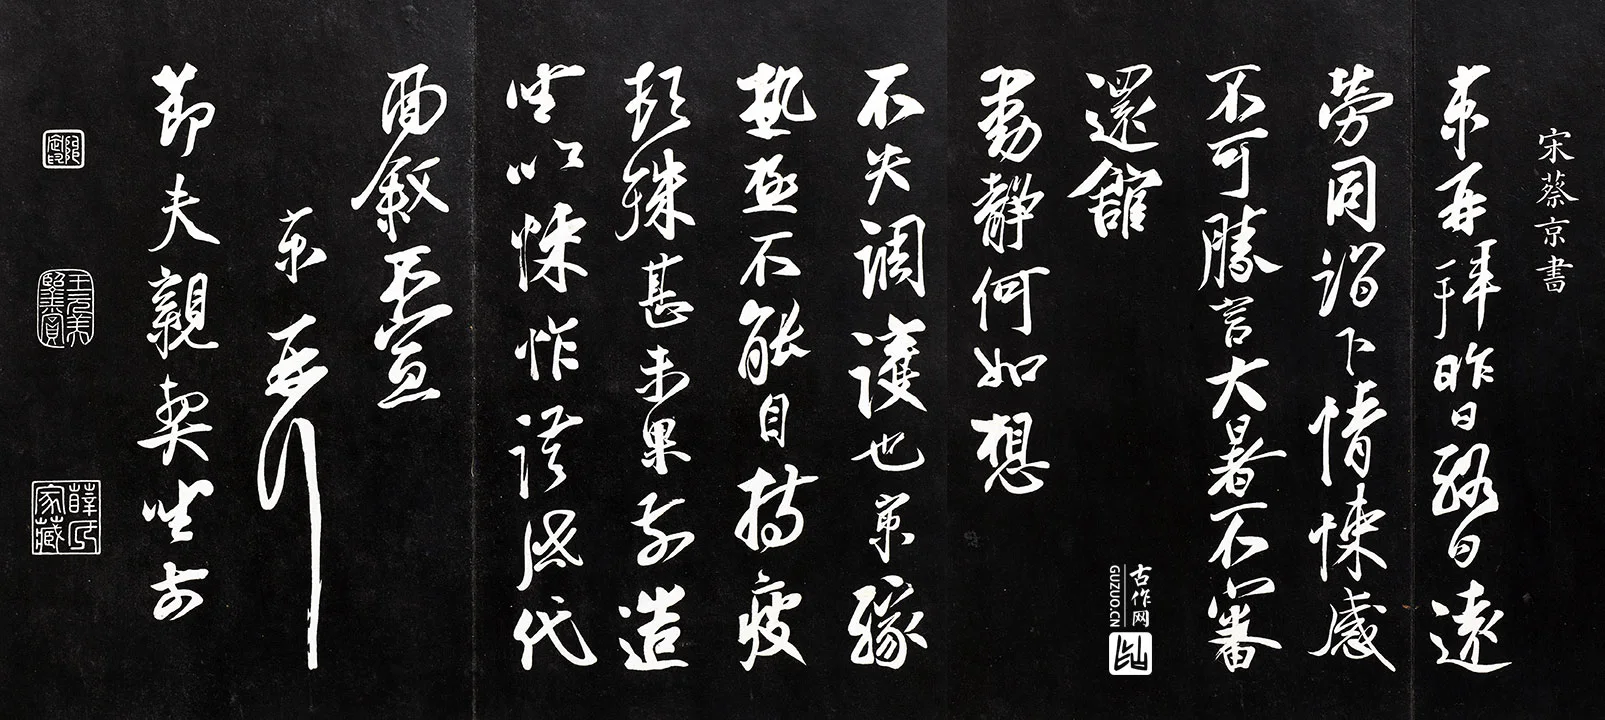 宋蔡京書
京再拜昨日終日遠
勞同詣下情悚感
不可勝言大暑不審
還館
動靜何如想
不失調護也京緣
熱極不能自持疲
頓殊甚未果前造
坐次悚怍謹啓代
面敘不宣
京再
節夫親契坐前
王元美鑒賞
薛氏家藏
古作网
GUZUO.CN